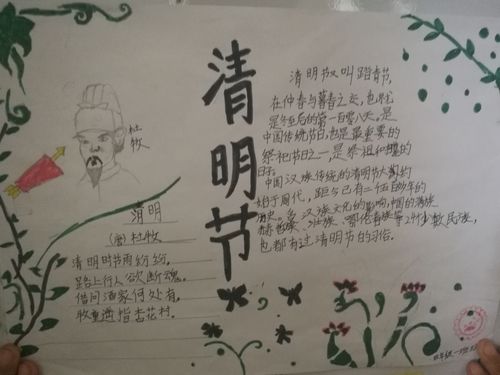 清明节
清明节又叫踏青节,
在仲春与暮春之交,也就
是冬至后的第一百零八天。是
中国传统节日,也是最重要的
祭祀节日之一,是祭祖和扫墓的
日子。
中国汉族传统的清明节大约
始于周代,距今已有二千五百多年的
历史。受汉族文化的影响,中国的满族
赫哲族、壮族、鄂伦春族等24个少数民族,
也都有过清明节的习俗。
杜牧
清明
(唐)杜牧
清明时节雨纷纷,
路上行人欲断魂。
借问酒家何处有,
牧童遥指杏花村。
四年级一班